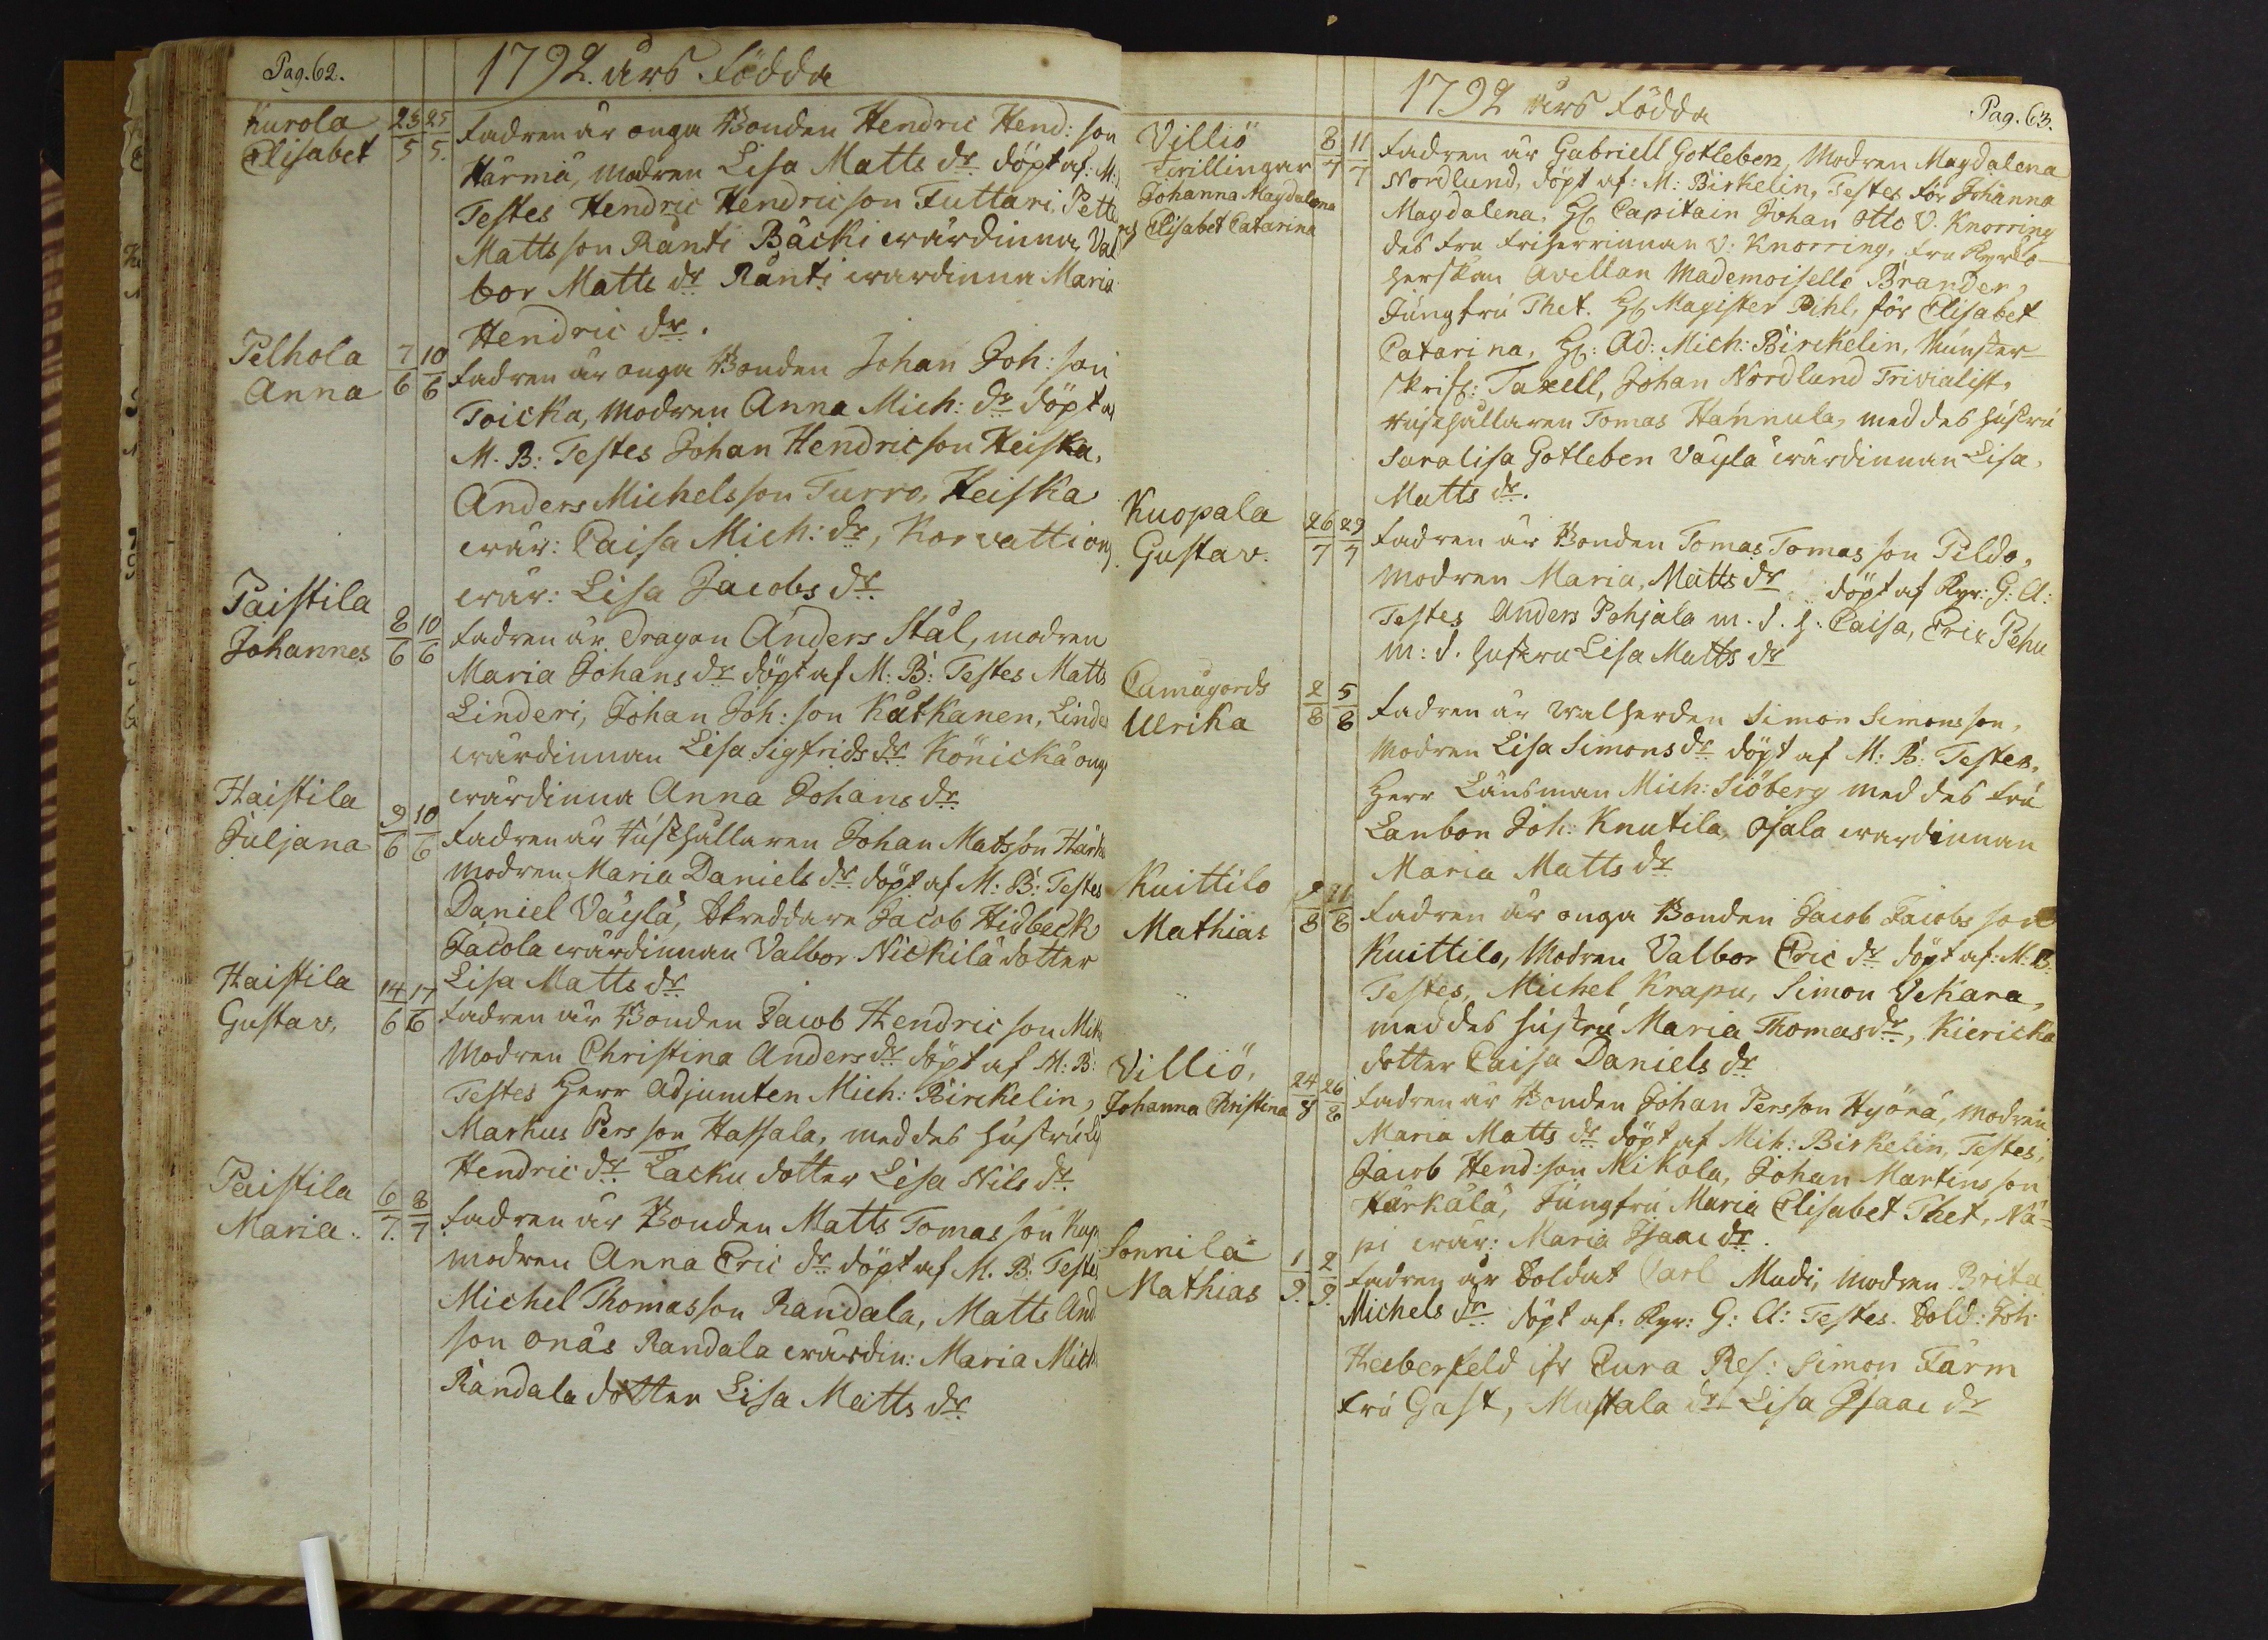 Pag. 62.
1792. års födda
Kurola
Elisabet
23/5 25/5.
fadren är unga Bonden Hendric Hend: son
Härmä, modren Lisa Matts dr. döpt af: M:
Testes Hendric Hendricson Futtari, Pette
Mattsson Ränti Bäcki wärdinna Val
bor Matts dr Ränti wärdinna Maria
Hendric dr.
Pelhola
Anna
7/6 10/6
fadren är unga Bonden Johan Joh: son
Toicka, modren Anna Mich: dr döpt a
M. B: Testes Johan Hendricson Heiska,
Anders Michelsson Turro, Heiska
wär: Caisa Mich: dr, Korvatti ong
wär: Lisa Jacobs dr.
Paistila
Johannes
8/6 10/6
fadren är Dragon Anders Stål, modren
Maria Johans dr döpt af M: B: Testes Matts
Linderi, Johan Joh: son Kätkanen, Linde
wärdinnan Lisa Sigfrids dr Könickä ong
wärdinna Anna Johans dr.
Haistila
Juljana
9/6 10/6
fadren är Rusthållaren Johan Matsson Härk
modren Maria Daniels dr döpt af M: B: Testes
Daniel Väylä, Skreddare Jacob Hidbeck
Jacola wärdinnan Valbor Nickilä dotter
Lisa Matts dr.
Haistila
Gustav,
14/6 17/6
fadren är Bonden Jacob Hendric son Mik
Modren Christina Anders dr döpt af M: B:
Testes Herr Adjuncten Mich: Birckelin,
Markus Pers son Hassala, med des hustru Li
Hendric dr. Lacku dotter Lisa Nils dr.
Paistila
Maria.
6/7. 8/7
fadren är Bonden Matts Tomas son Kap
modren Anna Eric dr döpt af M. B: Testes
Michel Thomasson Randala, Matts And
son Onäs Randala wärdin: Maria Mich
Randala dotter Lisa Matts dr.
1792 års födda
Pag. 63.
Villiö
Tvillingar
Johanna Magdalena
och Elisabet Catarina
8/7 11/7
fadren är Gabriell Gotleben, Modren Magdalena
Nordlund, döpt af: M: Birkelin, Testes för Johanna
Magdalena, H: Capitain Johan Otto V. Knorring
des fru friherrinnan V. Knorring, fru Kyrko-
herskan Avellan Mademoiselle Brander,
Jungfru Thet. H: Magister Pihl, för Elisabet
Catarina, H: Ad: Mich: Birckelin, Munster-
skrif: Taxell, Johan Nordlund Trivialist,
Rusthållaren Tomas Hannula, med des hustru
Saralisa Gotleben Väylä wärdinnan Lisa
Matts dr.
Kuopala
Gustav.
26/7 29/7
fadren är Bonden Tomas Tomas son Peldo,
Modren Maria, Matts dr döpt af Kyr: G: A:
Testes Anders Pohjala m. s. h. Caisa, Eric Pehu
m: s. hustru Lisa Matts dr
Camugords
Ulrika
2/8 5/8
fadren är walherden Simon Simonsson,
modren Lisa Simons dr döpt af M: B: Testes,
Herr Länsman Mich: Siöberg med des fru
Lanbon Joh: Knutila, Ojala wärdinnan
Maria Matts dr
Kuittilo
Mathias
9/8 11/8
fadren är unga Bonden Jacob Jacobs son
Kuittilo, Modren Valbor Eric dr döpt af: M. B:
Testes, Michel Krapu, Simon Vekara,
med des hustru Maria Thomas dr, Kiericka
dotter Caisa Daniels dr
Villiö,
Johanna Christina
24/8 26/8
fadren är Bonden Johan Persson Hyörä, modren
Maria Matts dr döpt af Mich: Birkelin, Testes,
Jacob Hend: son Mikola, Johan Martinsson
Härkälä, Jungfru Maria Elisabet Thet, Nä=
pi wär: Maria Isaac dr.
Sonnila
Mathias
1/9. 2/9.
fadren är Soldat Carl Madi, modren Brita
Michels dr döpt af: Kyr: G: A: Testes. Sold: Joh:
Heeberfeld ifr Eura Res: Simon Färm
fru Gast, Mustala dr Lisa Isaac dr